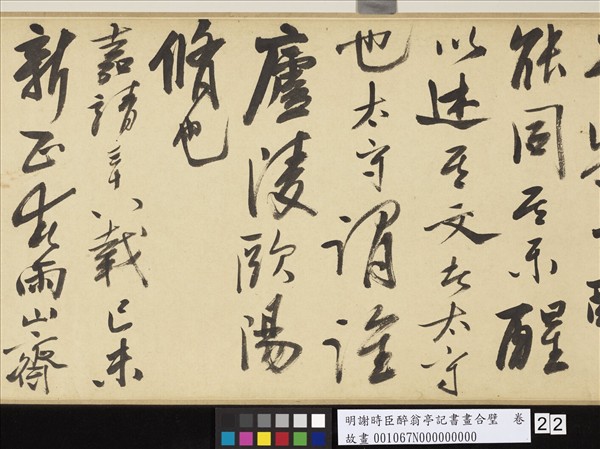 能同其樂醒
以述其文者太守
也太守謂誰
廬陵歐陽
脩也
嘉靖三十八載己未
新正春雨山齋
明謝時臣醉翁亭記書畫合璧 卷
故畫 001067N000000000
22